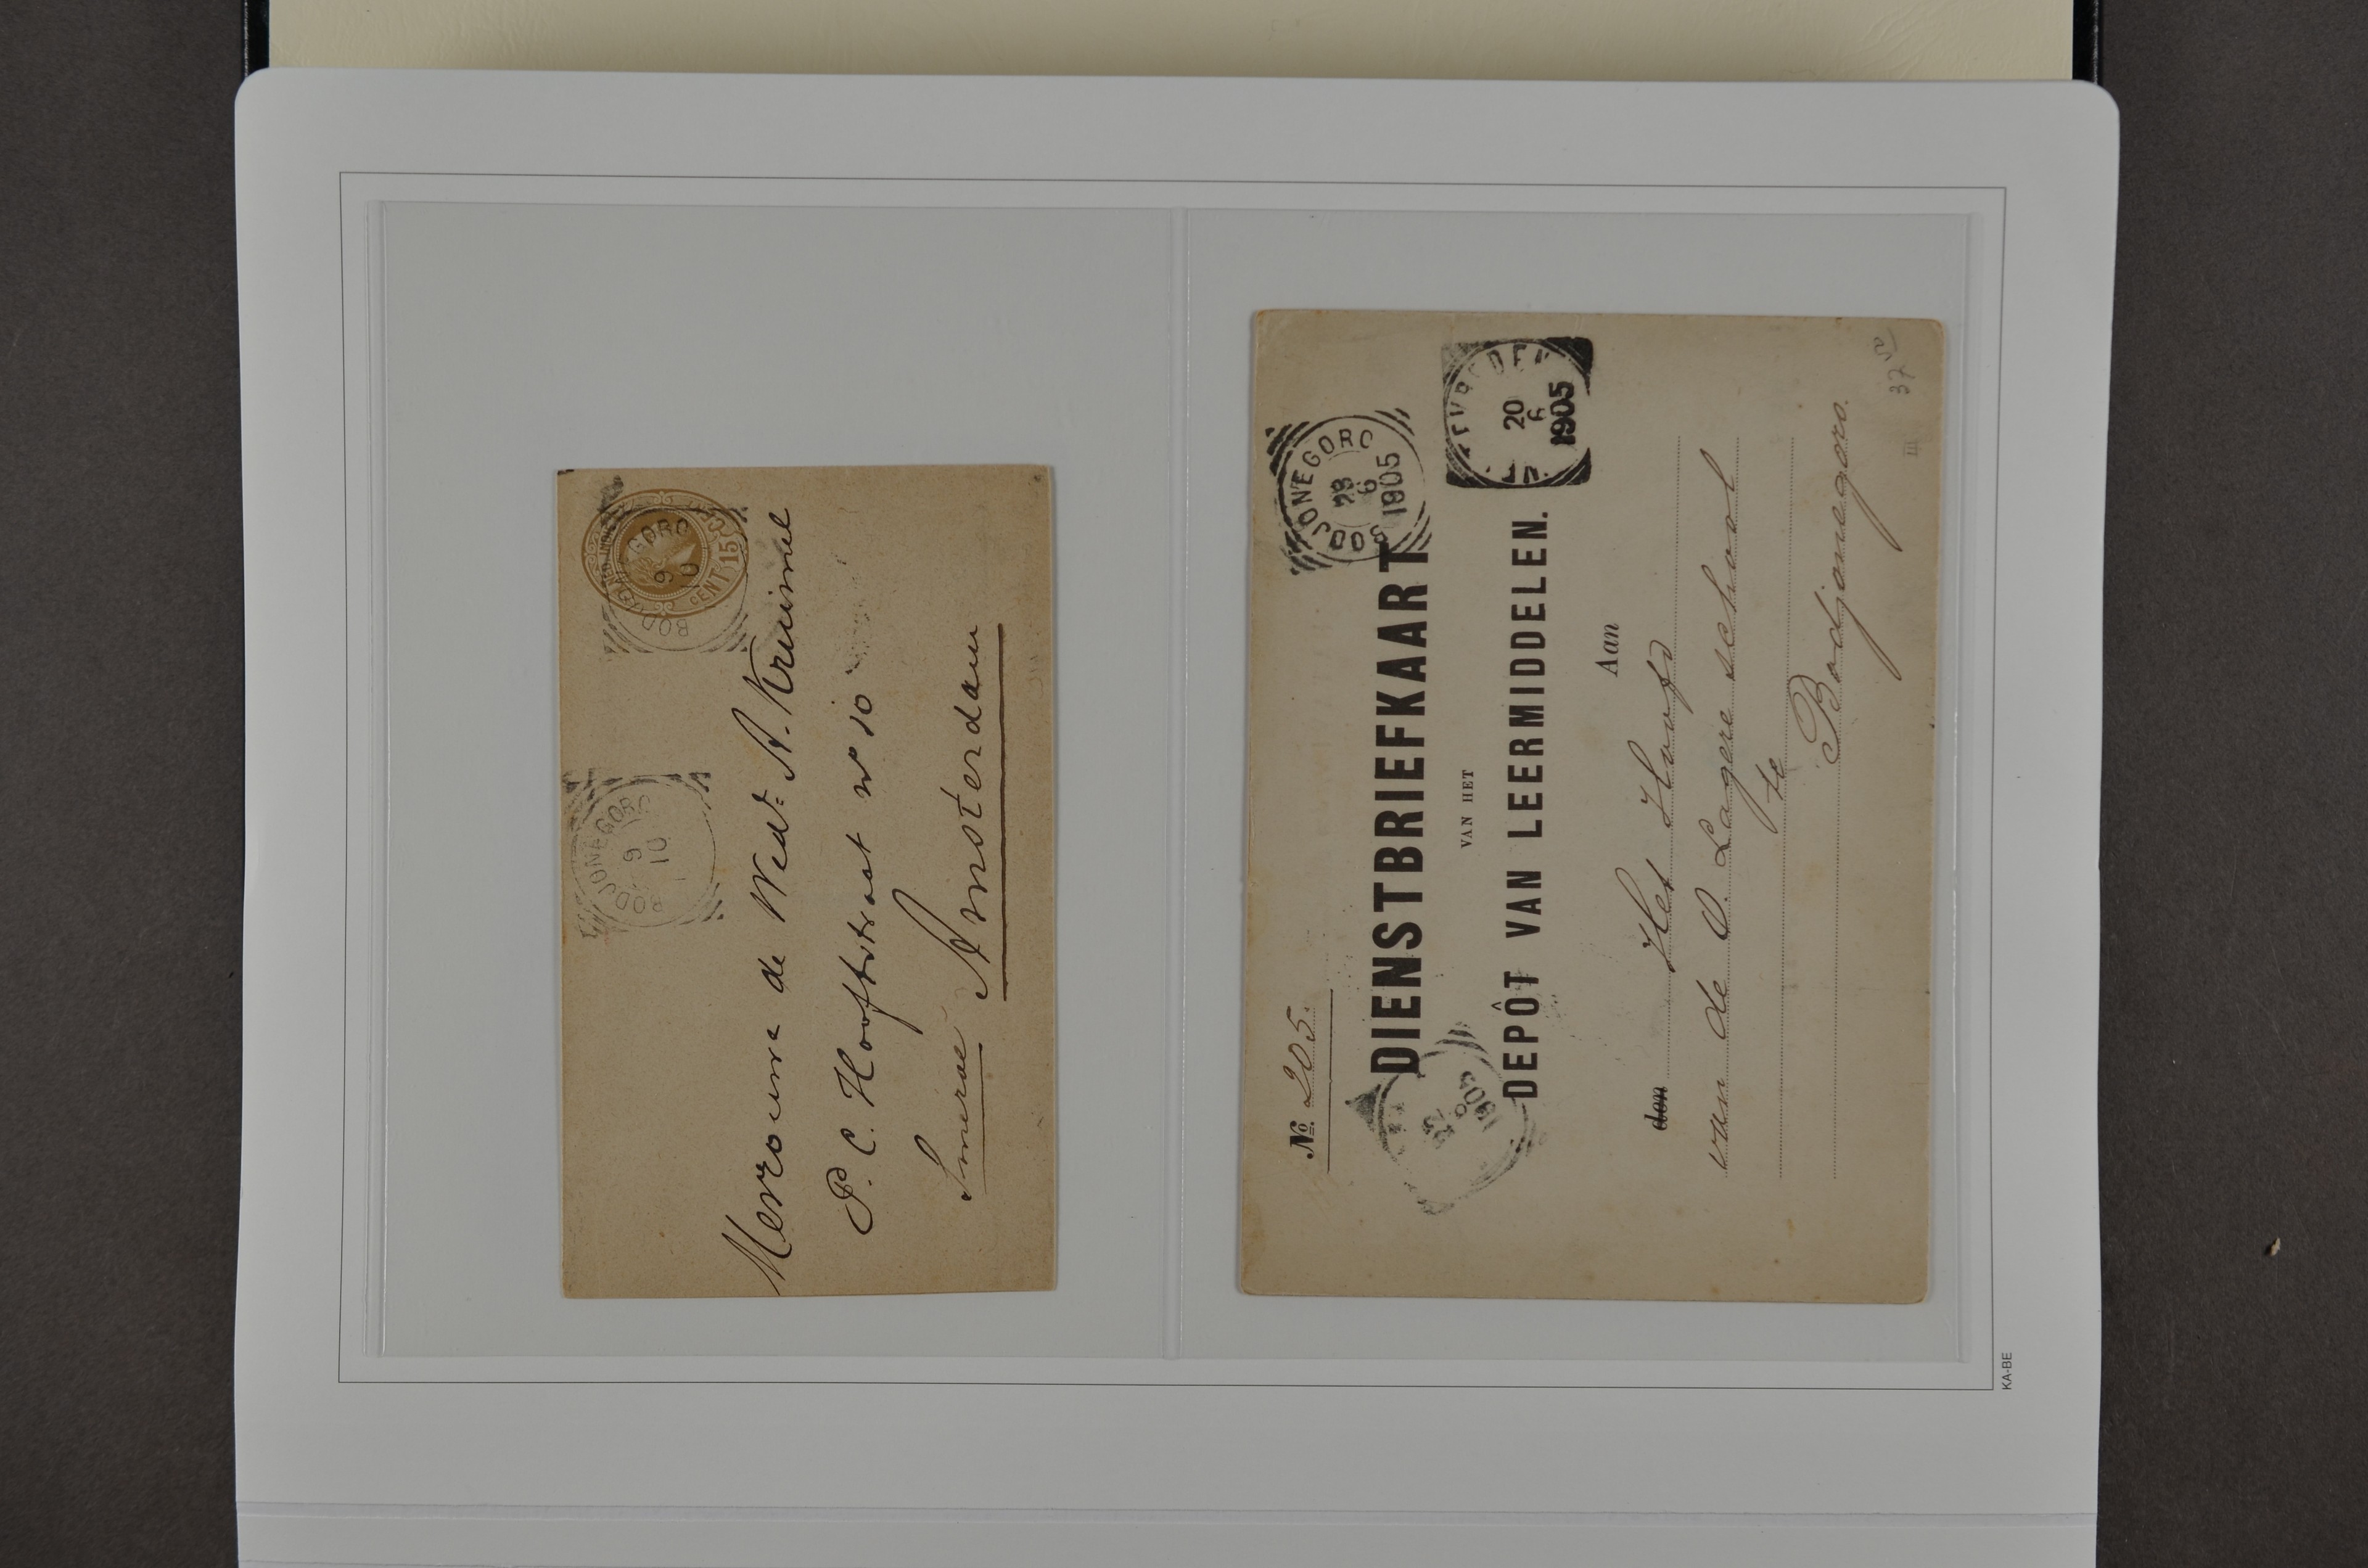 BODJONEGORO
9
10
NED. INDIE
CENT 15 CENT
BODJONEGORO
9
10
Mevrouw de Wed: A. Kruimel
P. C. Hooftstraat no 10
Amsterdam
No. 205.
BODJONEGORO
28
6
1905
DIENSTBRIEFKAART
VAN HET
DEPÔT VAN LEERMIDDELEN.
WELTEVREDEN
20
6
1905
22
6
1905
Aan
den Het Hoofd
van de O. Lagere school
te
Bodjonegoro.
37 50
III
KA-BE